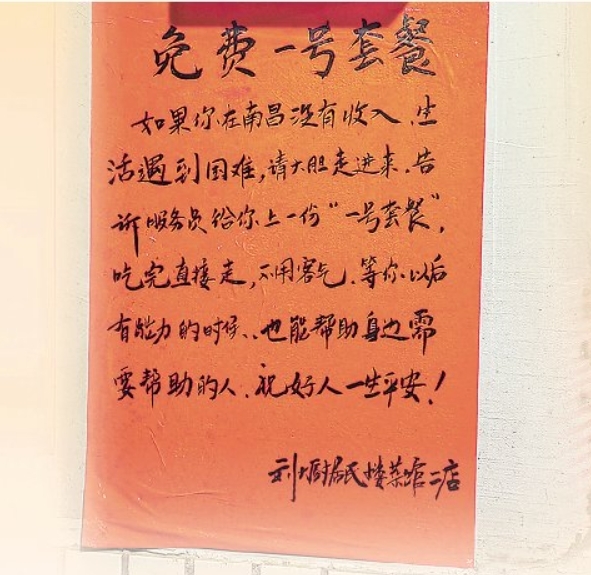 免费一号套餐
如果你在南昌没有收入.生
活遇到困难,请大胆走进来.告
诉服务员给你上一份“一号套餐”,
吃完直接走,不用客气.等你以后
有能力的时候..也能帮助身边需
要帮助的人.祝好人一生平安!
刘厨居民楼菜馆二店